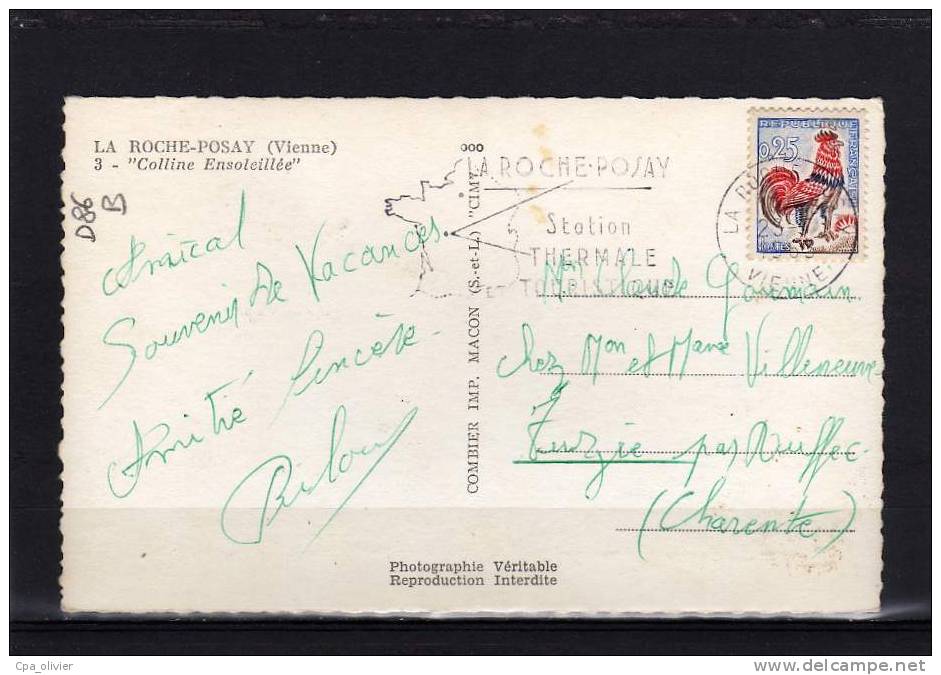 LA ROCHE-POSAY (Vienne)
3 - "Colline Ensoleillée"
D86
B
Amical
Souvenir de Vacances
Amitié Sincère
COMBIER IMP. MACON (S.-et-L.) "CIM"
LA ROCHE-POSAY
Station
THERMALE
ET TOURISTIQUE
REPUBLIQUE FRANÇAISE
0,25
LA ROCHE
VIENNE
Mr Claude Germain
chez Mon et Mme Villeneuve
Tuzie par Ruffec
(Charente)
Photographie Véritable
Reproduction Interdite
Cpa_olivier
www.delcampe.net